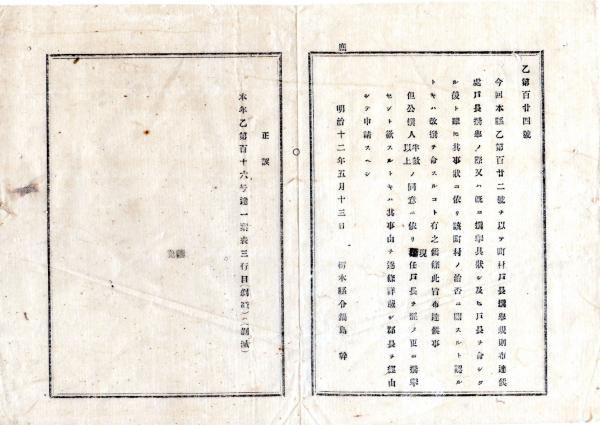 乙第百廿四號
今回本縣乙第百廿二號ヲ以テ町村戸長撰擧規則布達候
處戸長撰擧ノ際又ハ既ニ撰擧具狀シ及ヒ戸長ヲ命シタ
ル後ト雖モ其事狀ニ依リ該町村ノ治否ニ關スルト認ル
トキハ改撰ヲ命スルコト有之候條此旨布達候事
但公撰人半數以上ノ同意ニ依リ現任戸長ヲ罷メ更ニ撰擧
セント欲スルトキハ其事由ヲ逐條詳載シ郡長ヲ經由
シテ申請スヘシ
明治十二年五月十三日
栃木縣令鍋島 幹
正誤
本年乙第百十六号達一覽表三行目